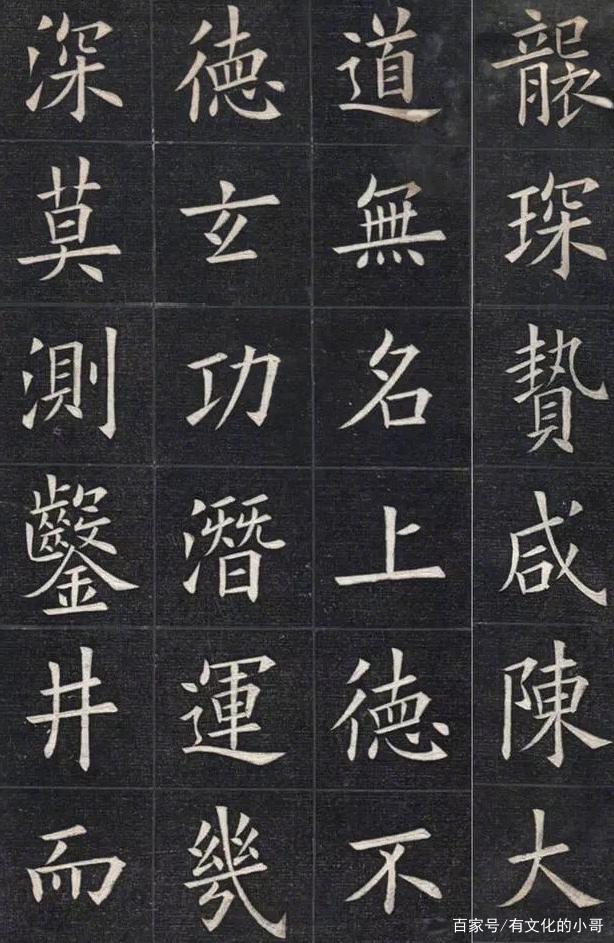 襲琛贄咸陳大
道無名上德不
德玄功潛運幾
深莫測鑿井而
百家号/有文化的小哥